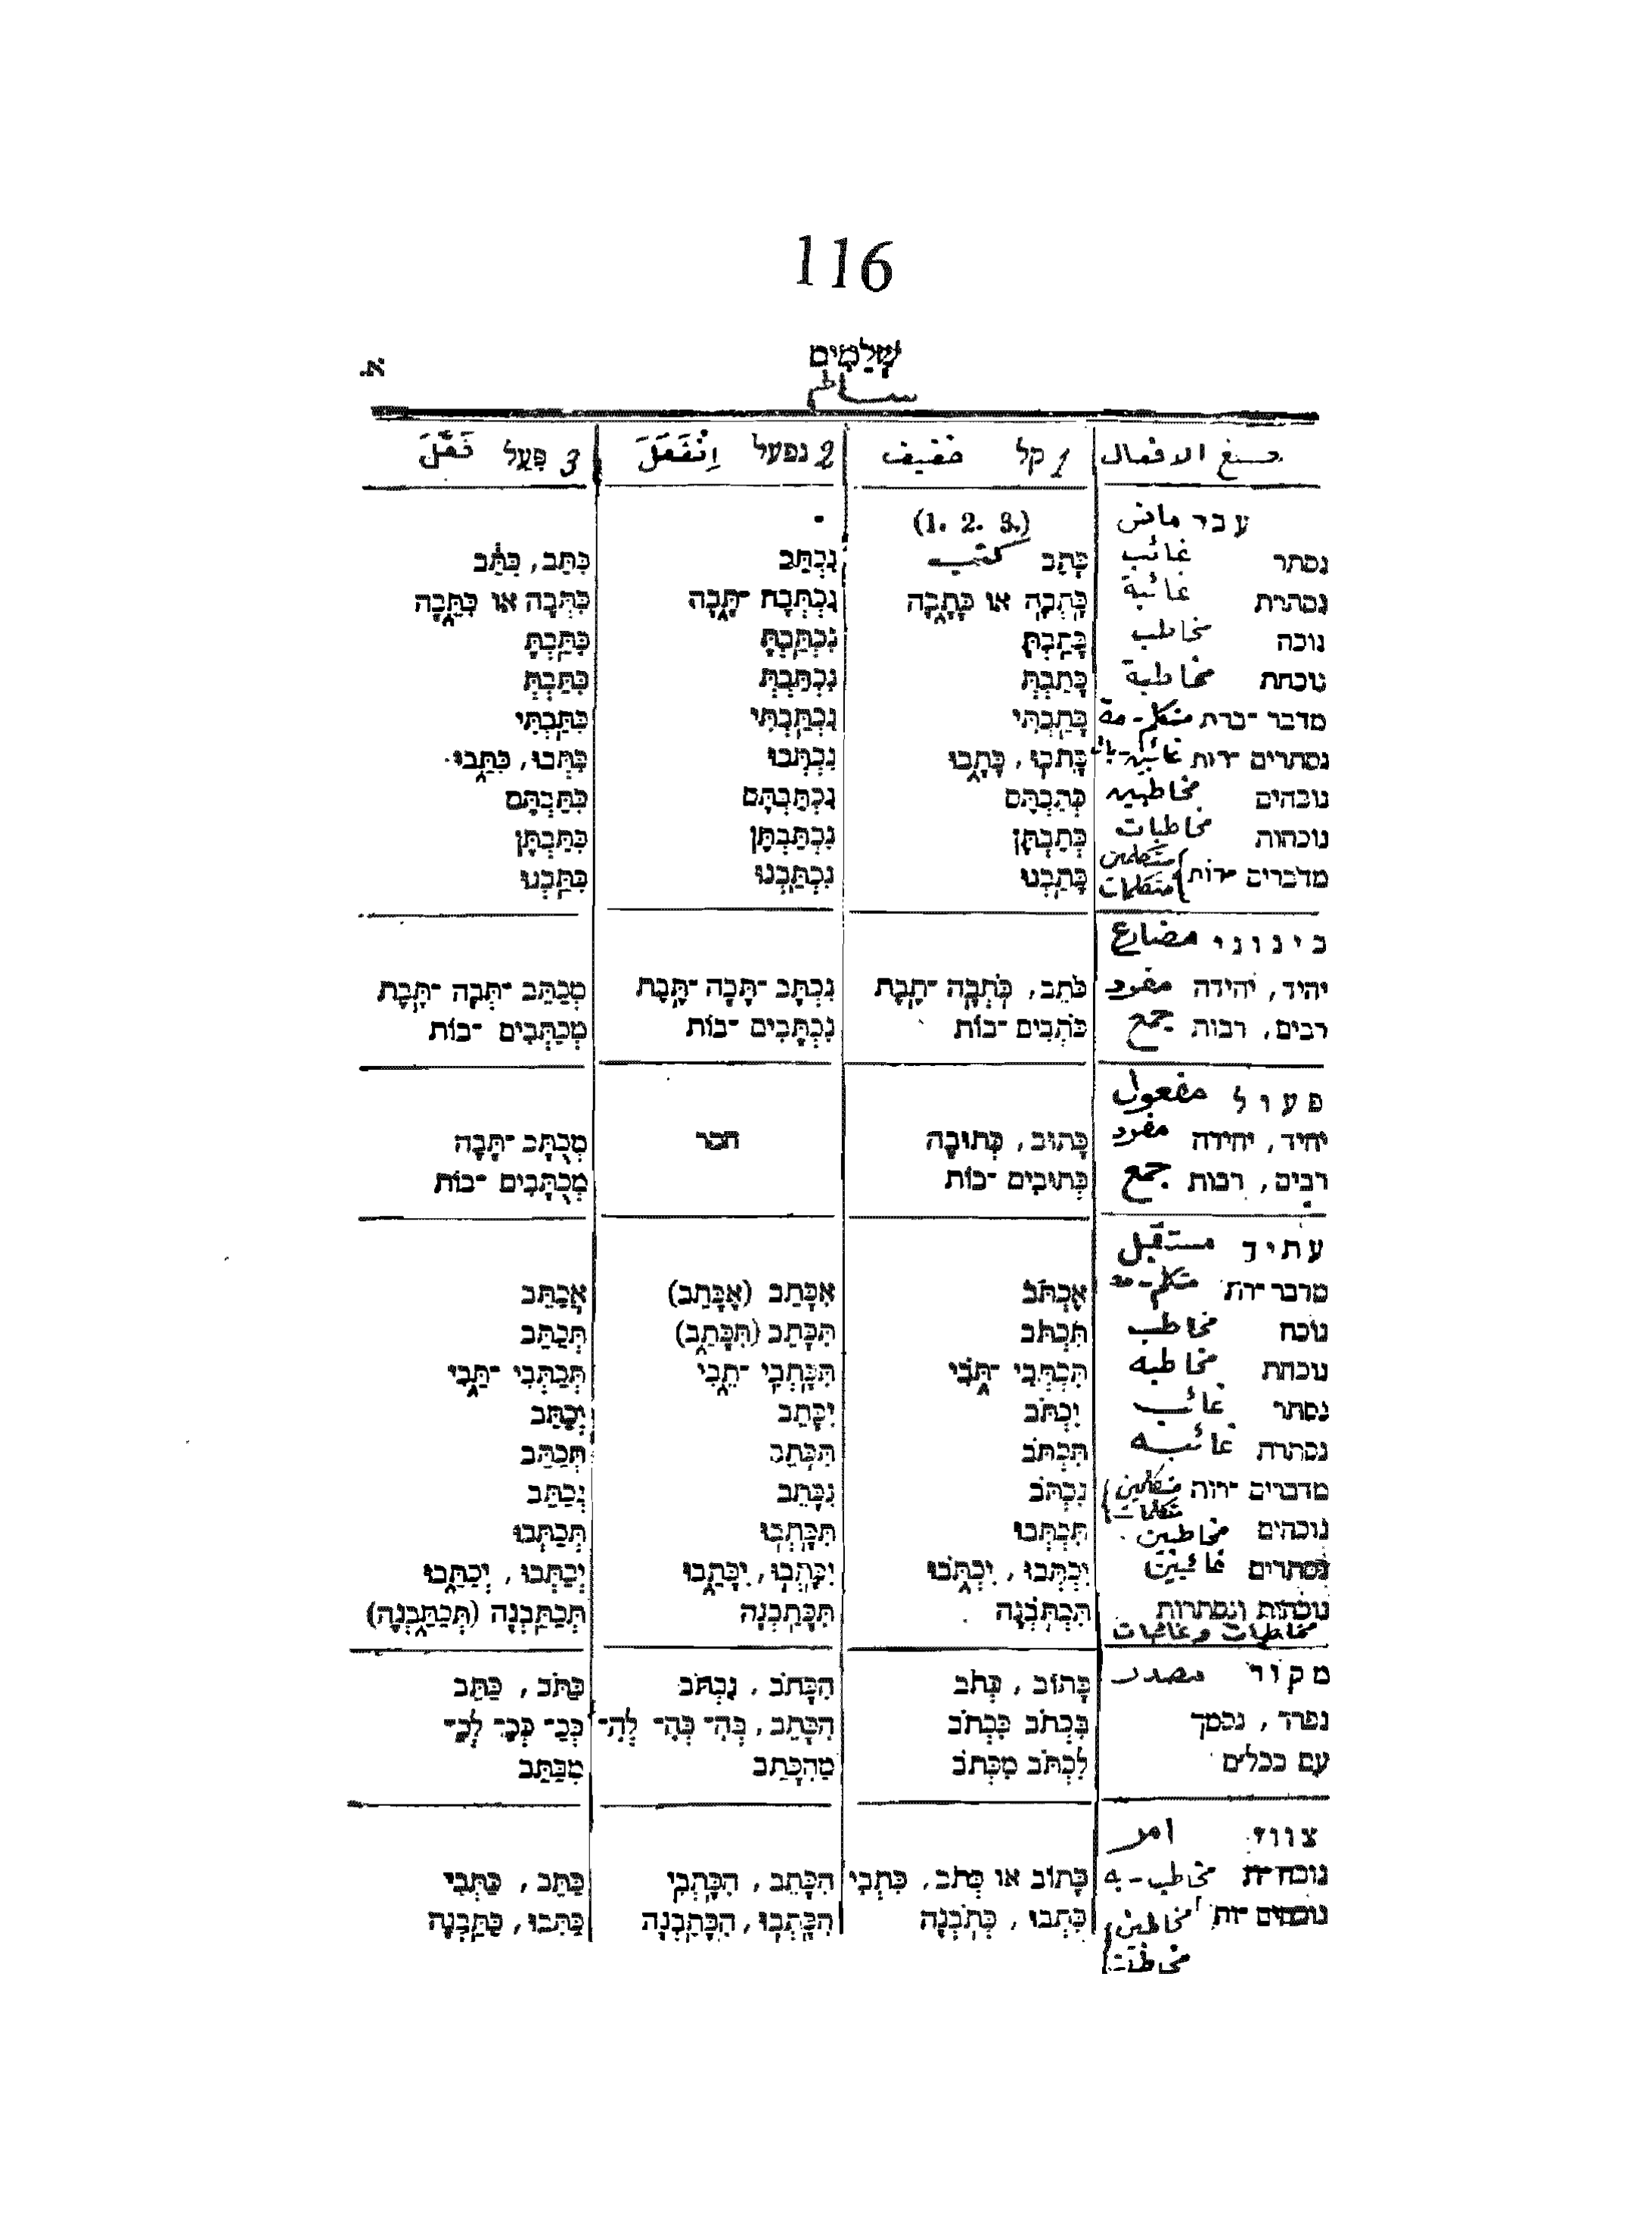 116
שְׁלֵמִים
א.
سالم
صيغ الافعال 1 קל خفيف 2 נפעל اِنْفَعَلَ 3 פִּעֵל فَعَّلَ
עבר ماض (1. 2. 3.)
נסתר غائب כָּתַב كتب נִכְתַּב כִּתֵּב, כִּתַּב
נסתרת غائبة כָּתְבָה או כָּתָבָה נִכְתְּבָה -תָּבָה כִּתְּבָה או כִּתֵּבָה
נוכח مخاطب כָּתַבְתָּ נִכְתַּבְתָּ כִּתַּבְתָּ
נוכחת مخاطبة כָּתַבְתְּ נִכְתַּבְתְּ כִּתַּבְתְּ
מדבר -ברת متكلم - مة כָּתַבְתִּי נִכְתַּבְתִּי כִּתַּבְתִּי
נסתרים -רות כָּתְבוּ, כָּתָבוּ נִכְתְּבוּ כִּתְּבוּ, כִּתֵּבוּ
נוכחים مخاطبين כְּתַבְתֶּם נִכְתַּבְתֶּם כִּתַּבְתֶּם
נוכחות مخاطبات כְּתַבְתֶּן נִכְתַּבְתֶּן כִּתַּבְתֶּן
מדברים -רות متكلمين متكلمات כָּתַבְנוּ נִכְתַּבְנוּ כִּתַּבְנוּ
בינוני مضارع
יחיד, יחידה مفرد כֹּתֵב, כֹּתְבָה -תֶבֶת נִכְתָּב -תָּבָה -תֶּבֶת מְכַתֵּב -תְּבָה -תֶּבֶת
רבים, רבות جمع כֹּתְבִים -בוֹת נִכְתָּבִים -בוֹת מְכַתְּבִים -בוֹת
פעול مفعول
יחיד, יחידה مفرد כָּתוּב, כְּתוּבָה חסר מְכֻתָּב -תָּבָה
רבים, רבות جمع כְּתוּבִים -בוֹת מְכֻתָּבִים -בוֹת
עתיד مستقبل
מדבר -רת متكلم - مة אֶכְתֹּב אִכָּתֵב (אֶכָּתֵב) אֲכַתֵּב
נוכח مخاطب תִּכְתֹּב תִּכָּתֵב (תִּכָּתַב) תְּכַתֵּב
נוכחת مخاطبه תִּכְתְּבִי -תֹּבִי תִּכָּתְבִי -תֵבִי תְּכַתְּבִי -תֵּבִי
נסתר غائب יִכְתֹּב יִכָּתֵב יְכַתֵּב
נסתרת غائبه תִּכְתֹּב תִּכָּתֵב תְּכַתֵּב
מדברים -רות متكلمين متكلمات נִכְתֹּב נִכָּתֵב נְכַתֵּב
נוכחים مخاطبين תִּכְתְּבוּ תִּכָּתְבוּ תְּכַתְּבוּ
נסתרים غائبين יִכְתְּבוּ, יִכְתֹּבוּ יִכָּתְבוּ, יִכָּתֵבוּ יְכַתְּבוּ, יְכַתֵּבוּ
נוכחות ונסתרות תִּכְתֹּבְנָה תִּכָּתַבְנָה תְּכַתֵּבְנָה (תְּכַתַּבְנָה)
مخاطبات وغائبات
מקור مصدر כָּתוֹב, כְּתֹב הִכָּתֹב, נִכְתֹּב כַּתֹּב, כַּתֵּב
נפרד, נסמך בִּכְתֹב כִּכְתֹב הִכָּתֵב, בְּהִ- כְּהִ- לְהִ- בְּכַ- כְּכַ- לְכַ-
עם בכלים לִכְתֹּב מִכְּתֹב מֵהִכָּתֵב מִכַּתֵּב
צווי امر
נוכח -ת مخاطب - به כְּתוֹב או כְּתֹב, כִּתְבִי הִכָּתֵב, הִכָּתְבִי כַּתֵּב, כַּתְּבִי
נוכחים -ות مخاطبين כִּתְבוּ, כְּתֹבְנָה הִכָּתְבוּ, הִכָּתַבְנָה כַּתְּבוּ, כַּתֵּבְנָה